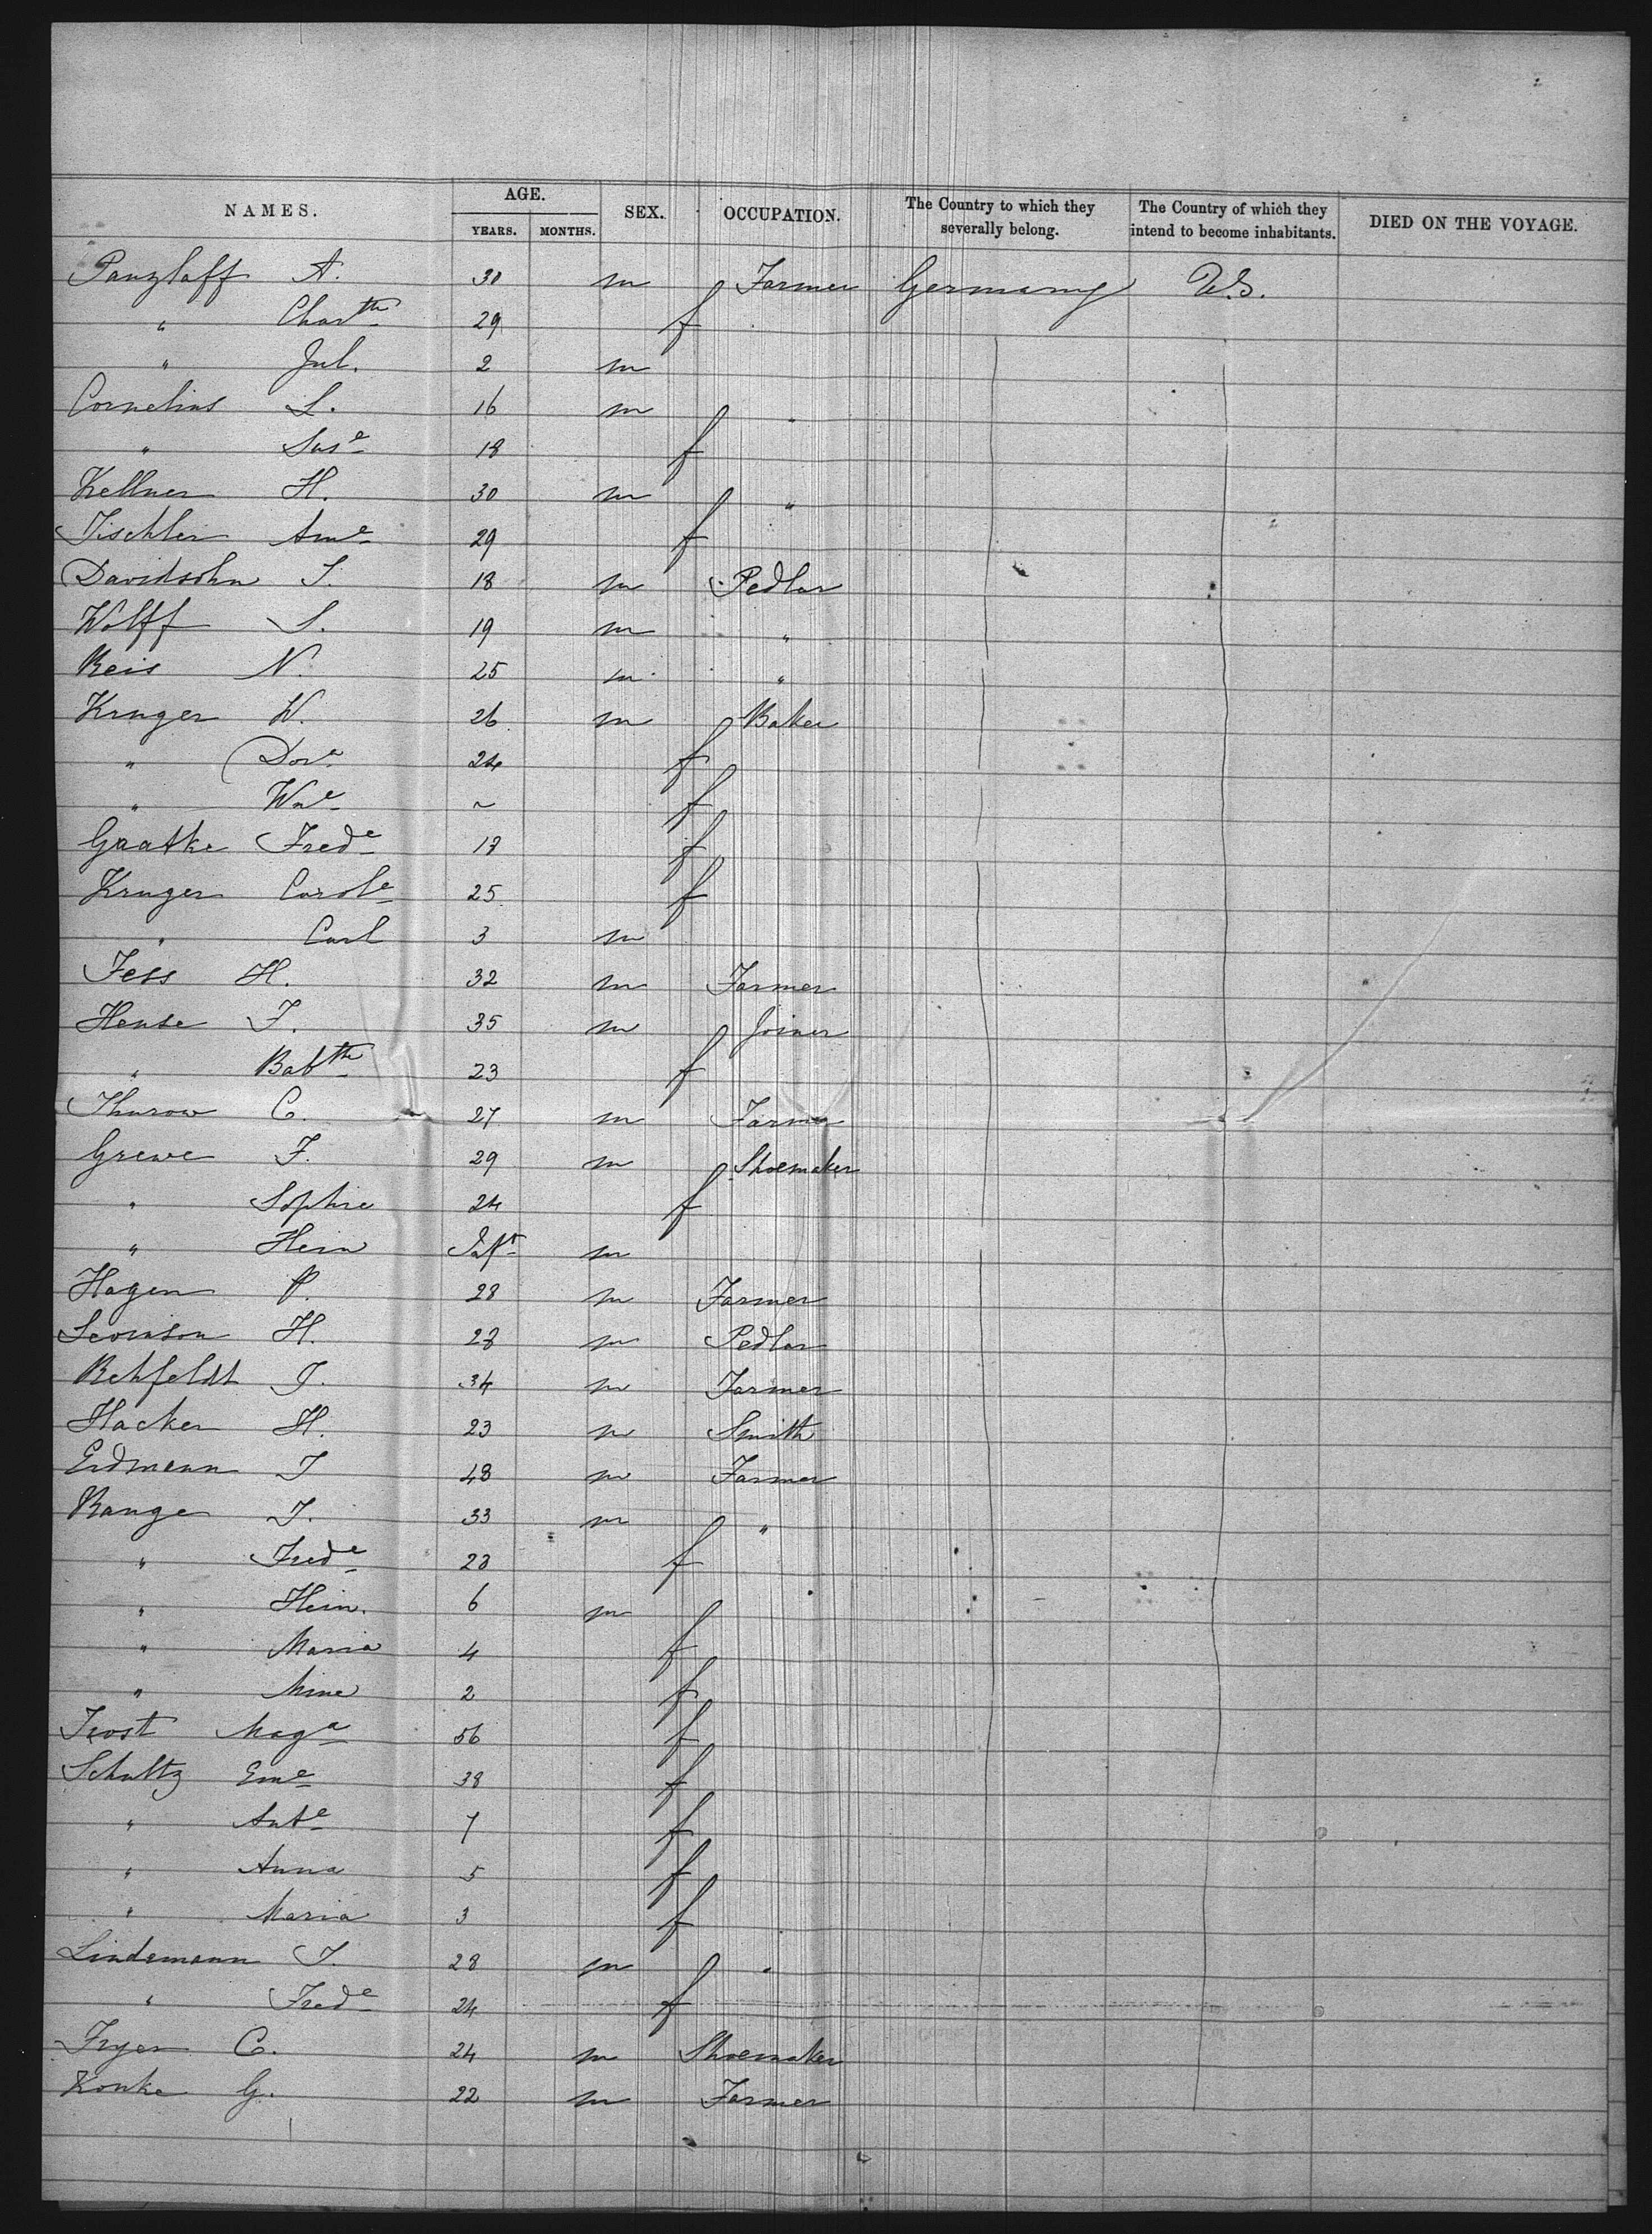 NAMES. AGE. YEARS. MONTHS. SEX. OCCUPATION. The Country to which they severally belong. The Country of which they intend to become inhabitants. DIED ON THE VOYAGE.
Panzlaff A. 30 m Farmer Germany U.S.
" Charth 29 f
" Jul. 2 m
Cornelius L. 16 m "
" Suse 18 f
Kellner H. 30 m "
Tischler Ame 29 f
Davidsohn S. 18 m Pedlar
Wolff S. 19 m "
Reis N. 25 m "
Kruger W. 26 m Baker
" Dore 24 f
" Wne ~ f
Gaatke Frede f
Kruger Carole 25 f
" Carl 3 m
Jess H. 32 m Farmer
Hense J. 35 m Joiner
" Babth 23 f
Thurow C. 27 m Farmer
Grewe F. 29 m Shoemaker
" Sophie 24 f
" Hein Inft m
Hagen P. 28 m Farmer
H. m Pedlar
Rehfeldt J. 34 m Farmer
Hacker H. 23 m Smith
Erdmann J 48 m Farmer
Range J. 33 m "
" Frede 28 f
" Hein. 6 m
" Maria 4 f
" Mine 2 f
Maga 56 f
Schultz Eme 38 f
" Aute 7 f
" Anna 5 f
" Maria 3 f
Lindemann J. 28 m "
" Frede 24 f
Fryer C. 24 m Shoemaker
Konke G. 22 m Farmer